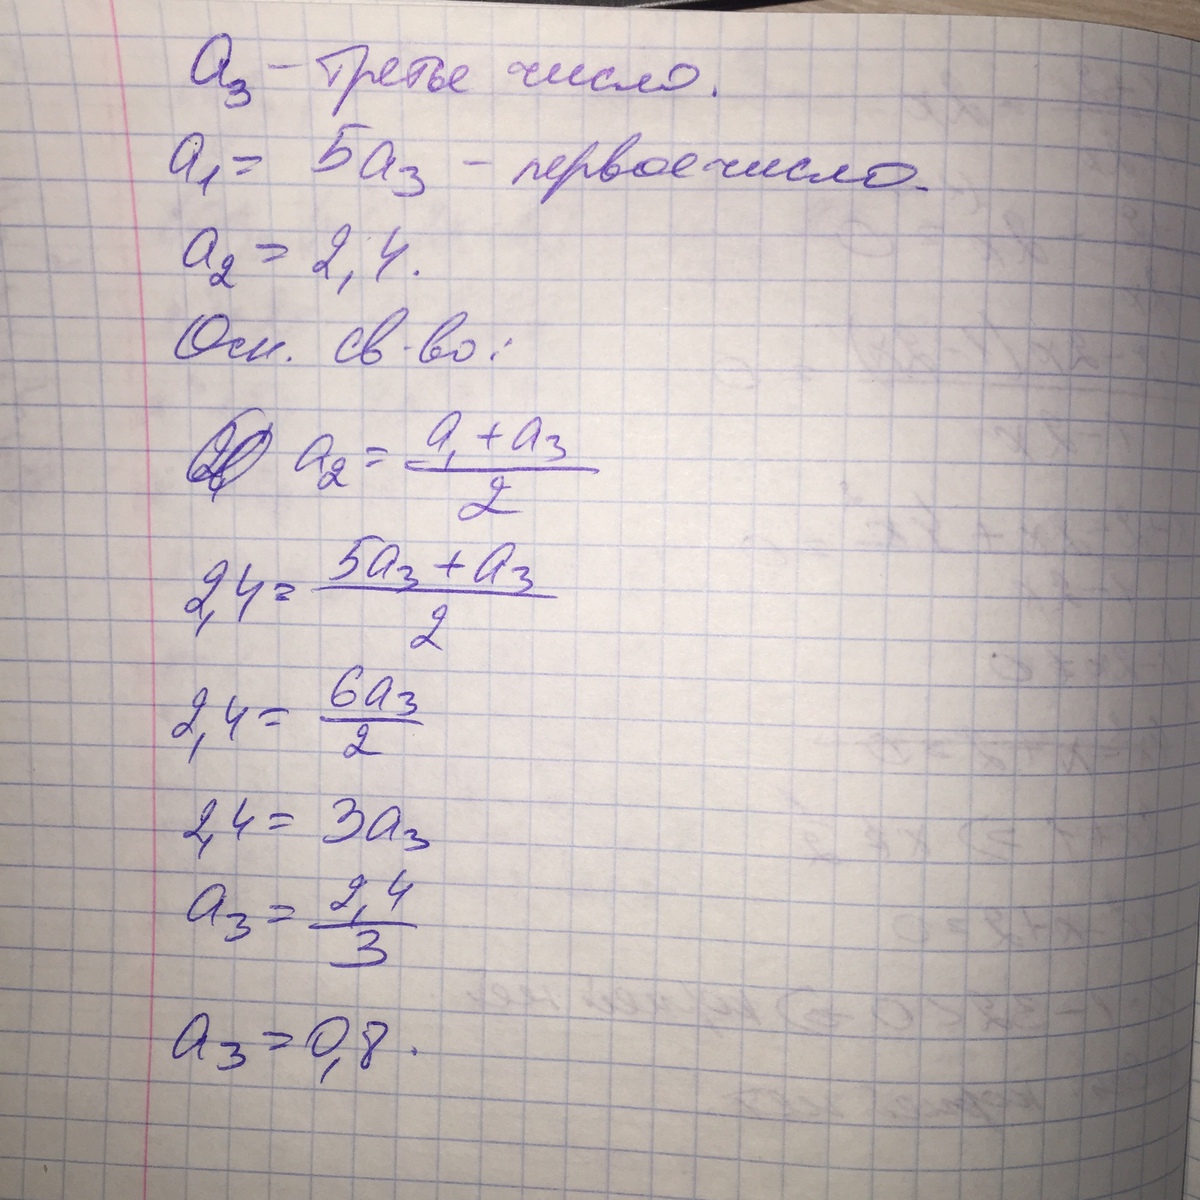 a₃ – третье число.
a₁ = 5a₃ – первое число.
a₂ = 2,4.
Осн. св-во:
a₂ = (a₁ + a₃)/2
2,4 = (5a₃ + a₃)/2
2,4 = 6a₃/2
2,4 = 3a₃
a₃ = 2,4/3
a₃ = 0,8.